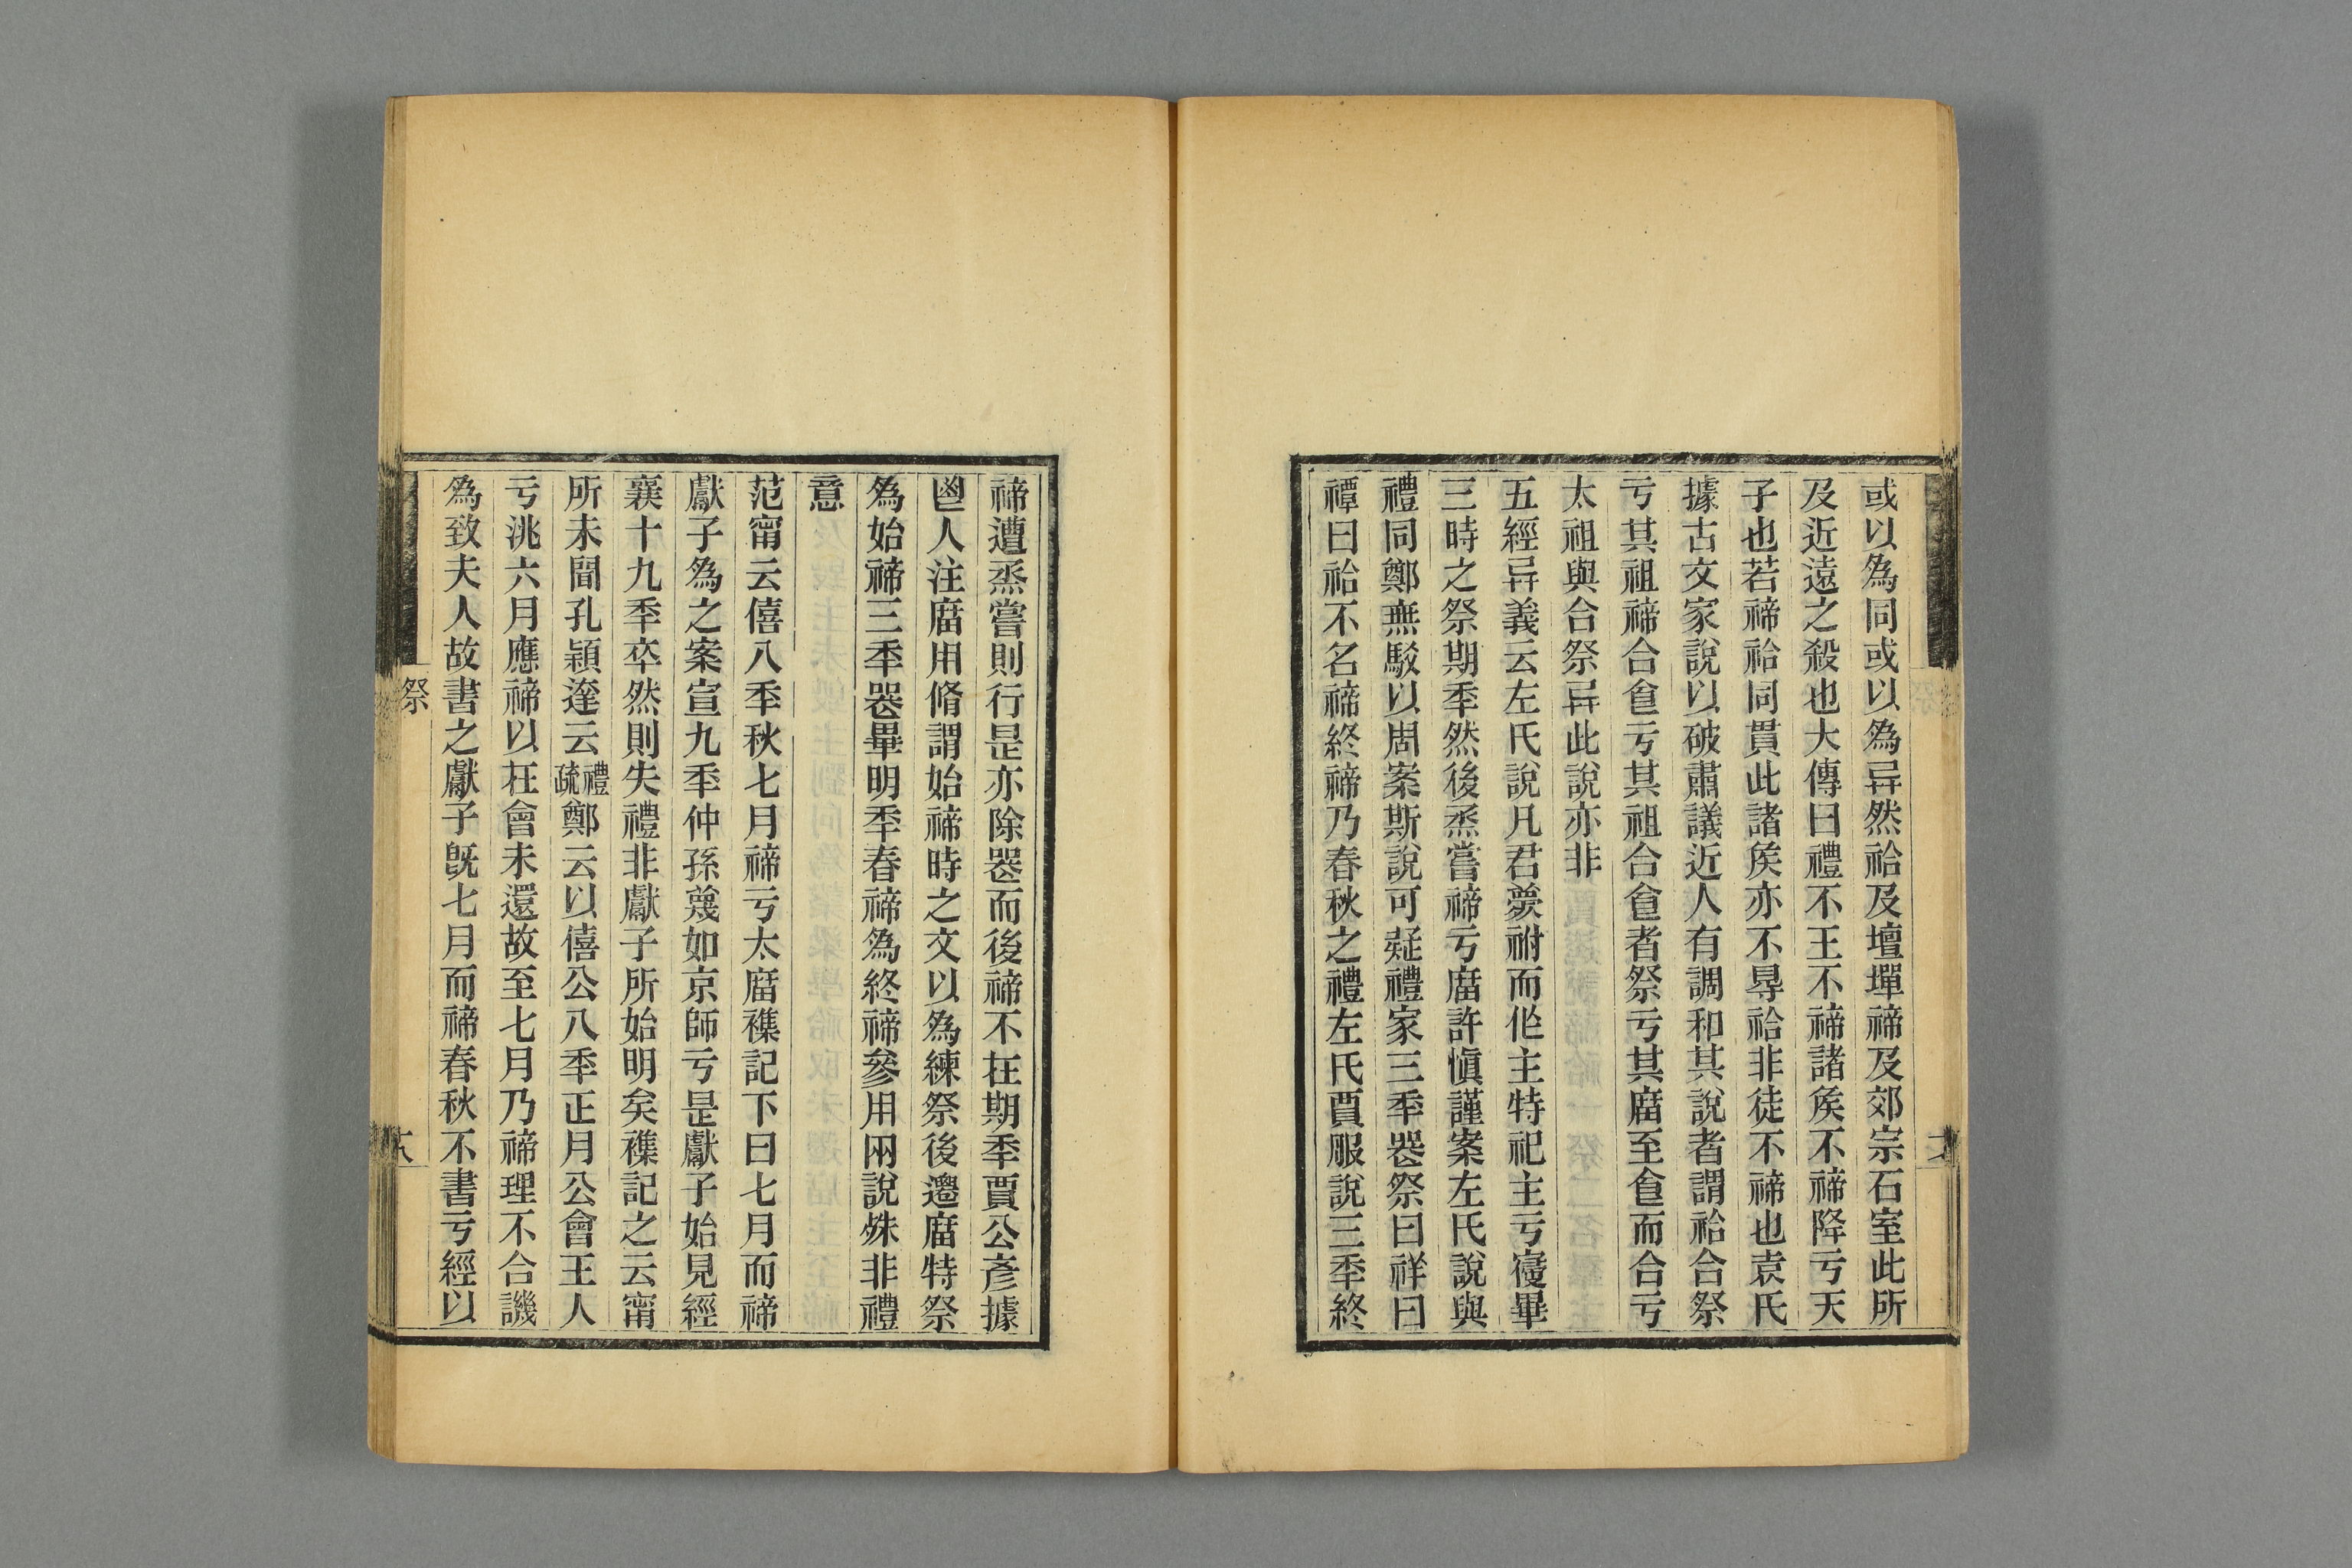 或以爲同或以爲异然祫及壇墠禘及郊宗石室此所
及近遠之殺也大傳曰禮不王不禘諸矦不禘降亏天
子也若禘祫同貫此諸矦亦不㝵祫非徒不禘也袁氏
據古文家說以破肅議近人有調和其說者謂祫合祭
亏其祖禘合㑹亏其祖合㑹者祭亏其庿至㑹而合亏
太祖與合祭异此說亦非
五經异義云左氏說凡君薨祔而作主特祀主亏寑畢
三時之祭期秊然後烝嘗禘亏庿許愼謹案左氏說與
禮同鄭無駁以周案斯說可疑禮家三秊器祭曰祥曰
禫曰祫不名禘終禘乃春秋之禮左氏賈服說三秊終
禘遭烝嘗則行是亦除器而後禘不在期秊賈公彥據
鬯人注庿用脩謂始禘時之文以爲練祭後遷庿特祭
爲始禘三秊器畢明秊春禘爲終禘參用兩說殊非禮
意
范甯云僖八秊秋七月禘亏太庿襍記下曰七月而禘
獻子爲之案宣九秊仲孫蔑如京師亏是獻子始見經
襄十九秊卒然則失禮非獻子所始明矣襍記之云甯
所未聞孔穎達云禮疏鄭云以僖公八秊正月公會王人
亏洮六月應禘以在會未還故至七月乃禘理不合譏
爲致夫人故書之獻子旣七月而禘春秋不書亏經以
祭